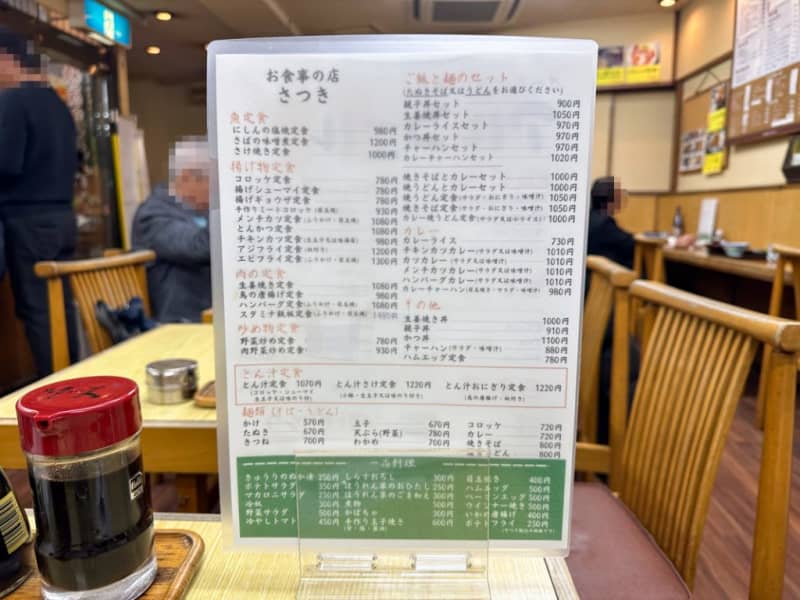 お食事の店
さつき
魚定食
にしんの塩焼定食 980円
さばの味噌煮定食 1200円
さけ焼き定食 1000円
揚げ物定食
コロッケ定食 780円
揚げシューマイ定食 780円
揚げギョウザ定食 780円
手作りミートコロッケ(目玉焼) 930円
メンチカツ定食(ふりかけ・目玉焼) 1080円
とんかつ定食 1080円
チキンカツ定食 980円
アジフライ定食 1200円
エビフライ定食(ふりかけ・目玉焼) 1300円
肉の定食
生姜焼き定食 1080円
鳥の唐揚げ定食 980円
ハンバーグ定食(ふりかけ・目玉焼) 1080円
スタミナ鉄板定食(ふりかけ・目玉焼)
炒め物定食
野菜炒め定食 780円
肉野菜炒め定食 930円
とん汁定食
とん汁定食 1070円 とん汁さけ定食 1220円 とん汁おにぎり定食 1220円
麺類(そば・うどん)
かけ 570円 玉子 670円 コロッケ 720円
たぬき 670円 天ぷら(野菜) 780円 カレー 720円
きつね 700円 わかめ 700円 焼きそば 800円
焼うどん 800円
ご飯と麺のセット
(たぬきそば又はうどんをお選びください)
親子丼セット 900円
生姜焼丼セット 1050円
カレーライスセット 970円
かつ丼セット 970円
チャーハンセット 970円
カレーチャーハンセット 1020円
焼きそばとカレーセット 1000円
焼うどんとカレーセット 1000円
焼うどん定食(サラダ・おにぎり・味噌汁) 1050円
焼そば定食(サラダ・おにぎり・味噌汁) 1050円
カレー焼うどん定食(サラダ又は小ライス) 1000円
カレー
カレーライス 730円
チキンカツカレー(サラダ又は味噌汁) 1010円
カツカレー(サラダ又は味噌汁) 1010円
メンチカツカレー(サラダ又は味噌汁) 1010円
ハンバーグカレー(サラダ又は味噌汁) 1010円
カレーチャーハン(目玉焼き・サラダ・味噌汁) 980円
その他
生姜焼き丼 1000円
親子丼 910円
かつ丼 1100円
チャーハン(サラダ・味噌汁) 880円
ハムエッグ定食 780円
一品料理
きゅうりのぬか漬 250円 しらすおろし 300円 目玉焼き 400円
ポテトサラダ 350円 ほうれん草のおひたし 250円 ハムエッグ 500円
マカロニサラダ 350円 ほうれん草のごまあえ 300円 ベーコンエッグ 500円
冷奴 300円 煮物 500円 ウインナー焼き 500円
野菜サラダ 500円 かぼちゃ 300円 いわし唐揚げ 400円
冷やしトマト 450円 手作り玉子焼き 600円 ポテトフライ 250円